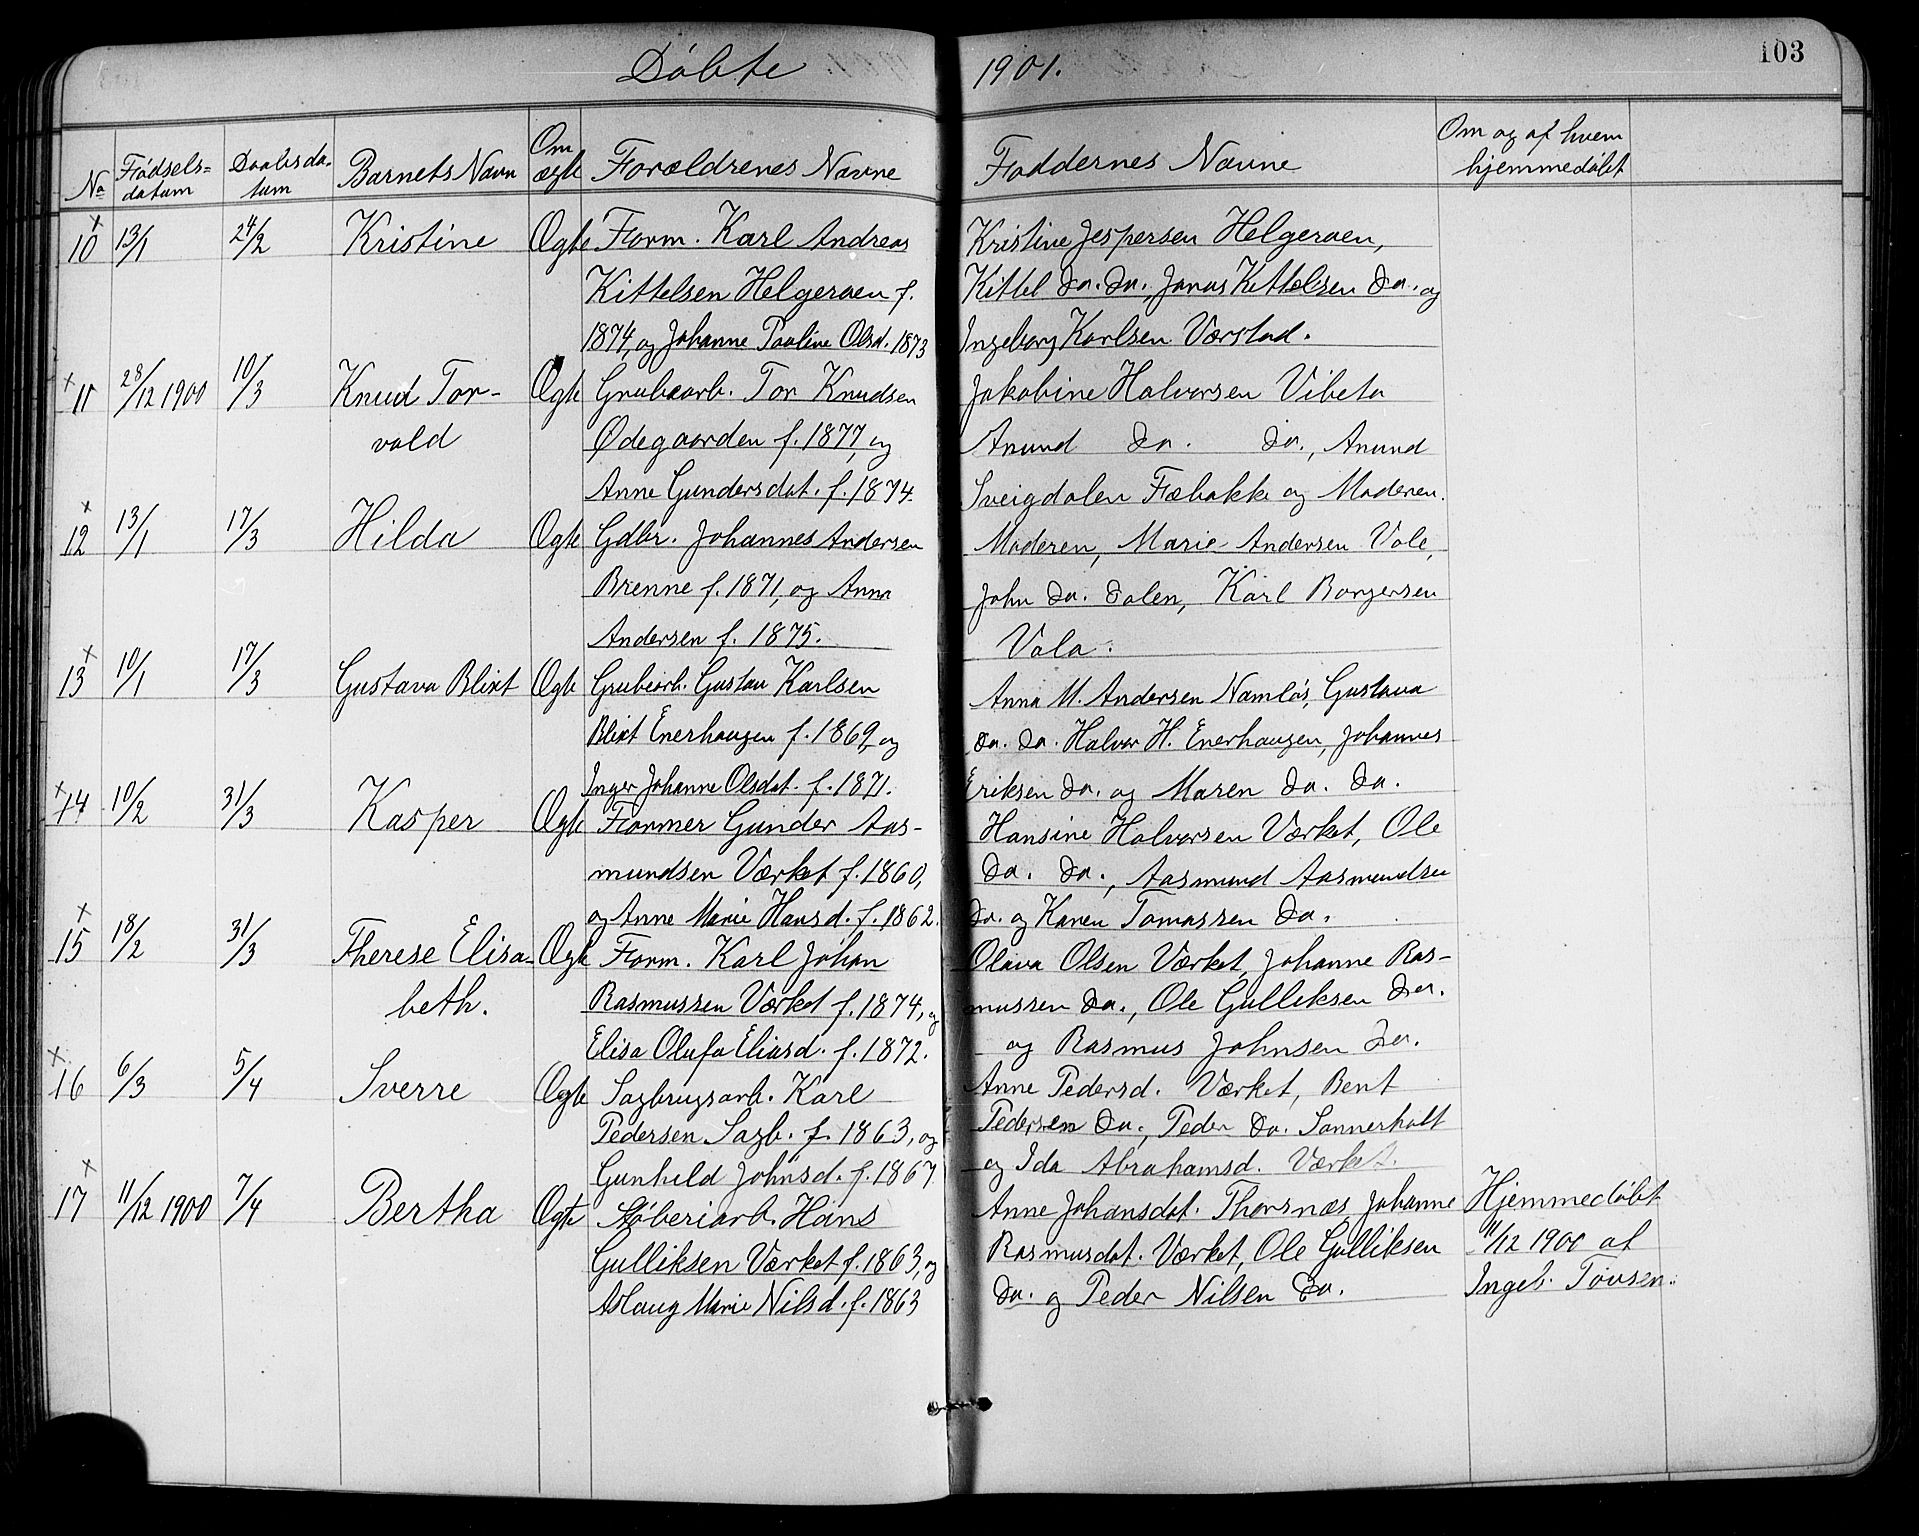 Døbte 1901. 103
No Fødsels= datum Daabsda- tum Barnets Navn Om ægte Forældrenes Navne Faddernes Navne Om og af hvem hjemmedøbt
10 13/1 24/2 Kristine Ægte Form. Karl Andreas Kristine Jespersen Helgeraen,
Kittelsen Helgeraen f. Kittel Do. Do., Jonas Kittelsen Do. og
1874, og Johanne Pauline Olsd. 1873 Ingeborg Karlsen Værstad.
11 28/12 1900 10/3 Knud Tor- Ægte Grubearb. Tor Knudsen Jakobine Halvorsen Vibeto
vald Ødegaarden f. 1877, og Anund Do. Do., Anund
Anne Gundersdat. f. 1874. Sveigdalen Fæbakke og Moderen.
12 13/1 17/3 Hilda Ægte Gdbr. Johannes Andersen Moderen, Marie Andersen Vole,
Brenne f. 1871, og Anna John Do. Dalen, Karl Borgersen
Andersen f. 1875. Vola.
13 10/1 17/3 Gustava Blixt Ægte Grubearb. Gustav Karlsen Anna M. Andersen Namløs, Gustava
Blixt Enerhaugen f. 1869, og Do. Do. Halvor H. Enerhaugen, Johannes
Inger Johanne Olsdat. f. 1871. Eriksen Do. og Maren Do. Do.
14 10/2 31/3 Kasper Ægte Former Gunder Aas- Hansine Halvorsen Værket, Ole
mundsen Værket f. 1860, Do. Do., Aasmund Aasmundsen
og Anne Marie Hansd. f. 1862. Do. og Karen Tomassen Do.
15 18/2 31/3 Therese Elisa- Ægte Form. Karl Johan Olava Olsen Værket, Johanne Ras-
beth. Rasmussen Værket f. 1874, og mussen Do., Ole Gulliksen Do.
Elise Olufa Eliasd. f. 1872. og Rasmus Johnsen Do.
16 6/3 5/4 Sverre Ægte Sagbrugsarb. Karl Anne Pedersd. Værket, Bent
Pedersen Sagb. f. 1863, og Pedersen Do., Peder Do. Sannerholt
Gunhild Johnsd. f. 1867 og Ida Abrahamsd. Værket.
17 11/12 1900 7/4 Bertha Ægte Støberiarb. Hans Anne Johansdat. Thorsnæs, Johanne Hjemmedøbt
Gulliksen Værket f. 1863, og Rasmusdat. Værket, Ole Gulliksen 11/12 1900 af
Aslaug Marie Nilsd. f. 1863 Do. og Peder Nilsen Do. Ingeb. Tovsen.